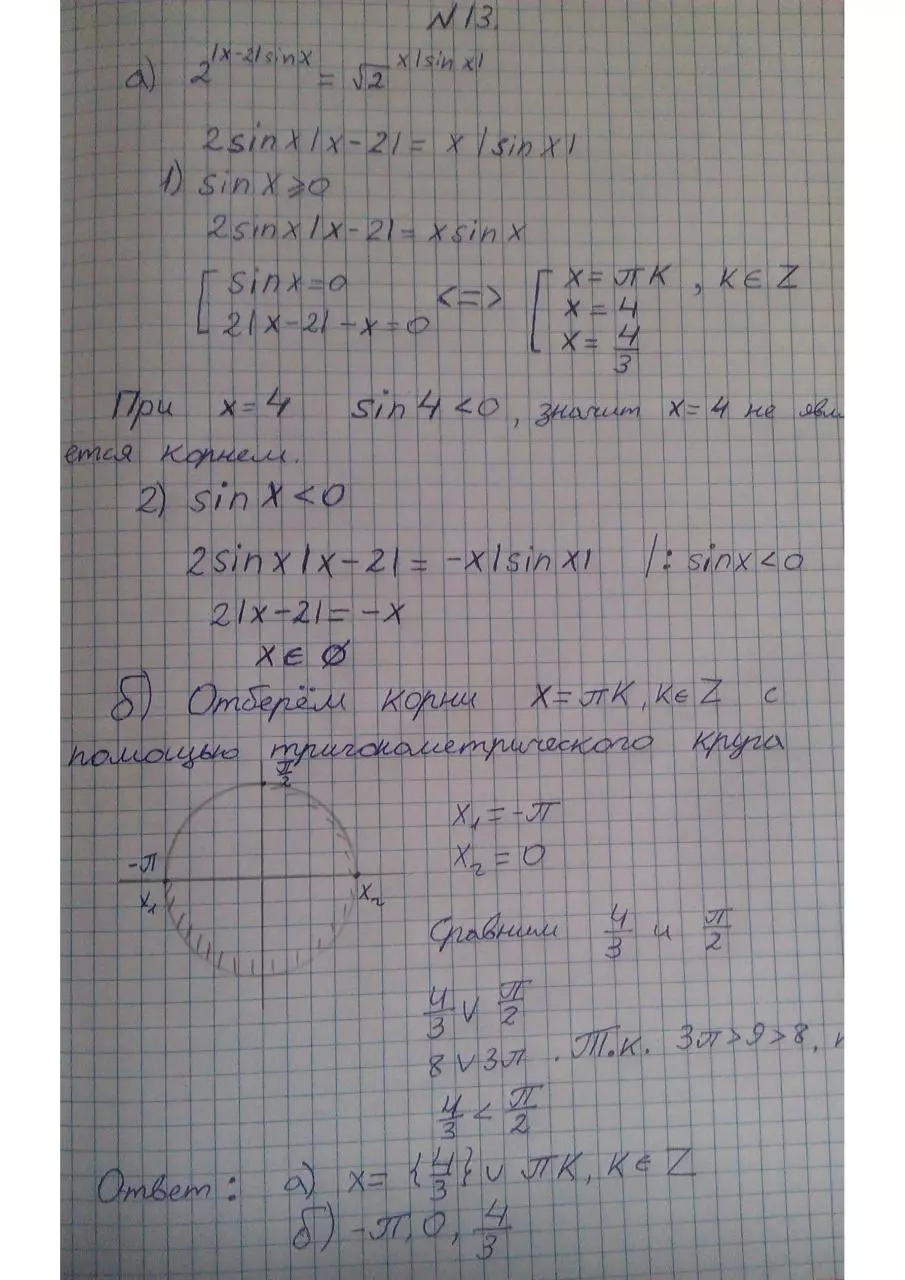 N 13.
а) 2^{|x-2|sinx} = √2^{x|sin x|}
2sinx|x-2| = x|sin x|
1) sin x ≥ 0
2sinx|x-2| = xsinx
[ sinx=0 <=> [ x = πк, к ∈ Z
2|x-2| - x = 0 x = 4
x = 4/3
При x=4 sin4 < 0, значит x=4 не явл
ется корнем.
2) sin x < 0
2sinx|x-2| = -x|sinx| |: sinx < 0
2|x-2| = -x
x ∈ ∅
б) Отберём корни x = πк, к ∈ Z с
помощью тригонометрического круга
π/2
x₁ = -π
x₂ = 0
-π
x₁ x₂
Сравним 4/3 и π/2
4/3 ∨ π/2
8 ∨ 3π . Т.к. 3π > 9 > 8,
4/3 < π/2
Ответ: а) x = {4/3} ∪ πк, к ∈ Z
б) -π, 0, 4/3